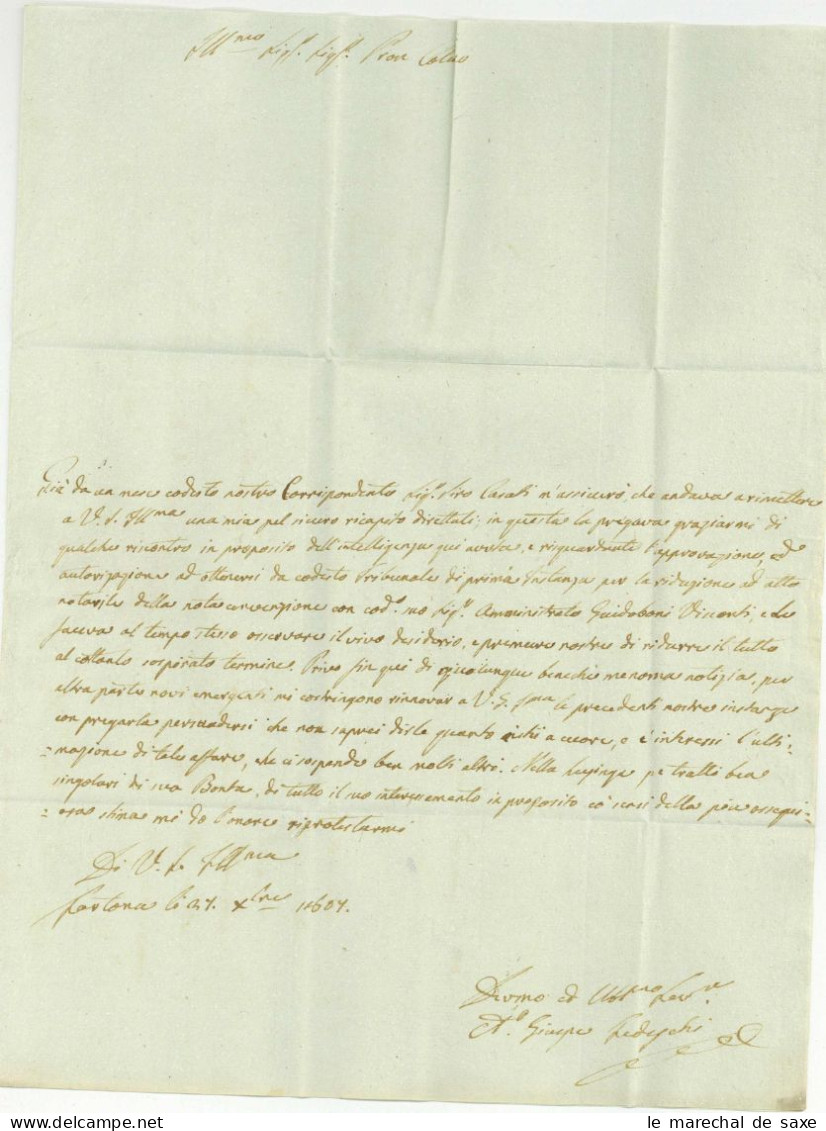 Ill.mo Sig.r Sig.r Pron Colmo
Già da un mese codesto nostro Corrispondente Sig.r Siro Casati m'assicurò, che andava a rimettere
a V. S. Ill.ma una mia pel sicuro ricapito direttali; in questa la pregava graziarmi di
qualche riscontro in proposito dell'intelligenza qui avuta, e risguardante l'approvazione, ed
autorizazione ad ottenersi da codesto Tribunale di prima Instanza per la riduzione ad atto
notarile della nota convenzione con cod.o suo Sig.r Amministrato Guidoboni Visconti, e Le
faceva al tempo stesso osservare il vivo desiderio, e premure nostre di ridurre il tutto
al cottanto sospirato termine. Privo fin qui di qualunque benchè menoma notizia, per
altra parte novi emergenti mi costringono rinnovar a V. S. Ill.ma le precedenti nostre instanze
con pregarla persuadersi che non saprei dirle quanto ci stii a cuore, e c'interessi l'ulti-
-mazione di tale affare, che ci sospende ben molti altri. Nella lusinga pe' tratti ben
singolari di sua Bontà, di tutto il suo interessamento in proposito co' sensi della più ossequi-
-osa stima mi do l'onore riprotestarmi
Di V. S. Ill.ma
Tortona li 27. Xbre 1807.
Devmo ed Obb.mo Serv.e
Giuseppe Tedeschi
le marechal de saxe